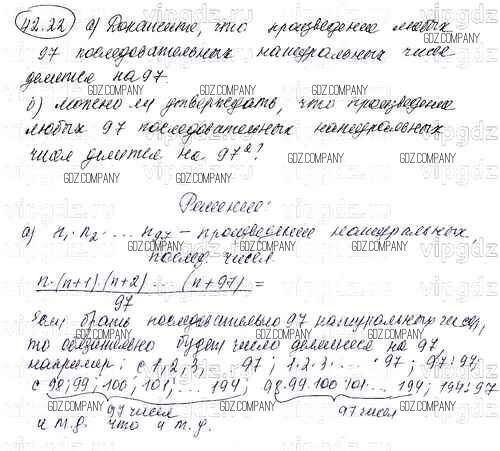 42.22 а) Докажите, что произведение любых
97 последовательных натуральных чисел
делится на 97.
б) можно ли утверждать, что произведение
любых 97 последовательных натуральных
чисел делится на 97²?
Решение:
а) n₁·n₂·...n₉₇ – произведение натуральных,
послед. чисел
n·(n+1)·(n+2)·...·(n+97) =
97
Если брать последовательно 97 натуральных чисел,
то обязательно будет число делимое на 97,
например: с 1,2,3,...97; 1·2·3·...·97; 97:97
с 98;99;100;101;...194; 98·99·100·101·...194; 194:97
97 чисел 97 чисел
и т.д. что и т.д.
GDZ.COMPANY
vipgdz